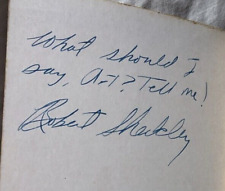 What should I
say, Art? Tell me!
Robert Sheckley